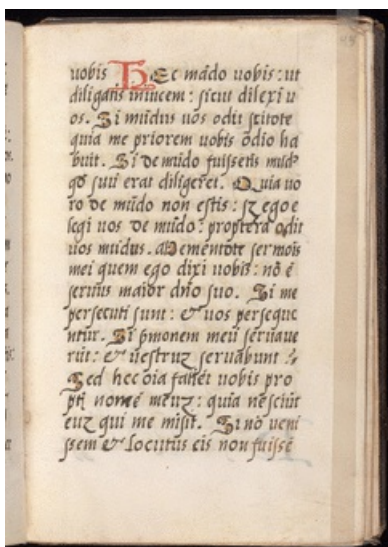 uobis Hec mãdo uobis: ut
diligatis inuicem: sicut dilexi u
os. Si mũdus uos odit scitote
quia me priorem uobis odio ha
buit. Si de mũdo fuissetis mũdꝰ
qđ suũ erat diligeret. Quia uo
ro de mũdo non estis: sꝫ ego e
legi uos de mũdo: propterea odit
uos mũdus. Mementote sermõis
mei quem ego dixi uobis: nõ ẽ
seruus maior dño suo. Si me
persecuti sunt: & uos perseque
ntur. Si sꝑmonem meũ seruaue
rũt: & uestruꝫ seruabunt.
Sed hec oĩa faciẽt uobis pro
pt̃ nomẽ meuꝫ: quia nesciũt
euꝫ qui me misit. Si nõ ueni
ssem & locutus eis non fuissẽ